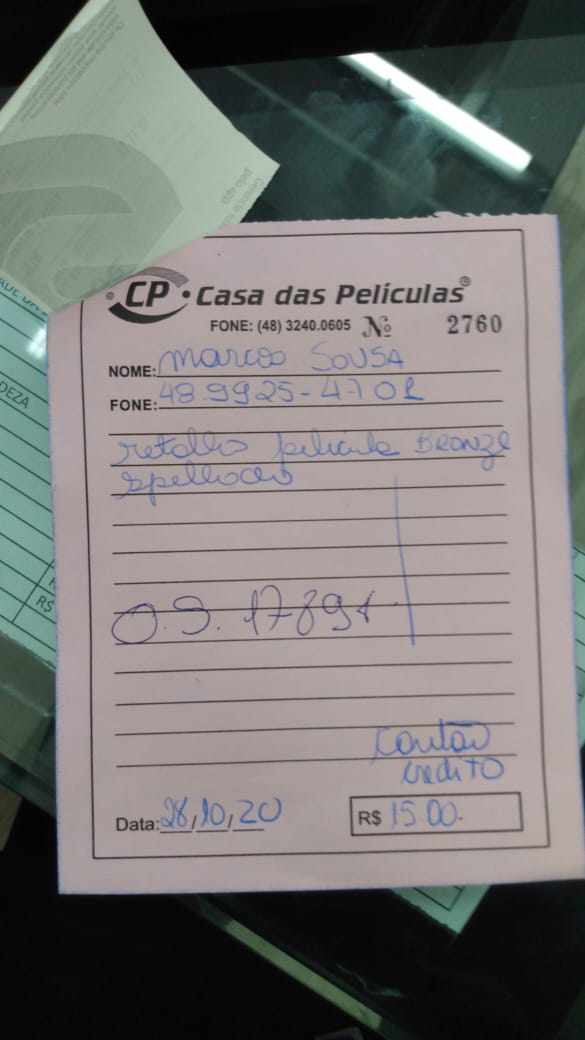 CP • Casa das Películas®
FONE: (48) 3240.0605 Nº 2760
NOME: Marcos SOUSA
FONE: 48 9925-4701
retalho pelicula BRONZE
espelhado
O.S. 17891
Cartão
credito
Data: 28/10/20 R$ 15.00
DEZA
R$